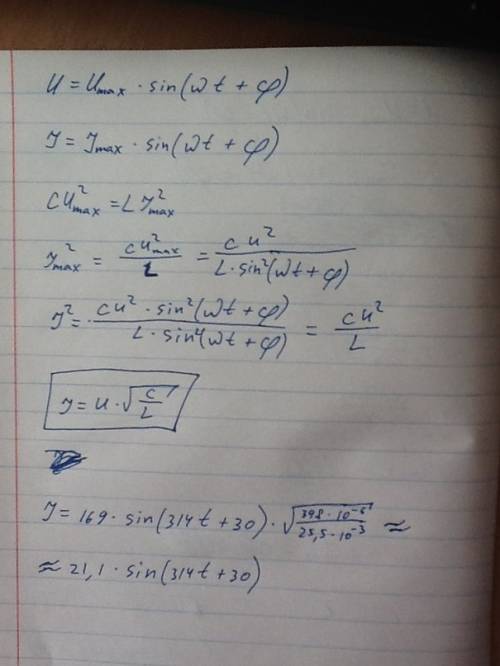 U = Umax · sin(ωt + φ)
I = Imax · sin(ωt + φ)
CU²max = LI²max
I²max = CU²max / L = CU² / L · sin²(ωt + φ)
I² = CU² · sin²(ωt + φ) / L · sin²(ωt + φ) = CU² / L
I = U · √(C / L)
I = 169 · sin(314t + 30) · √(398 · 10⁻⁶ / 25,5 · 10⁻³) ≈
≈ 21,1 · sin(314t + 30)